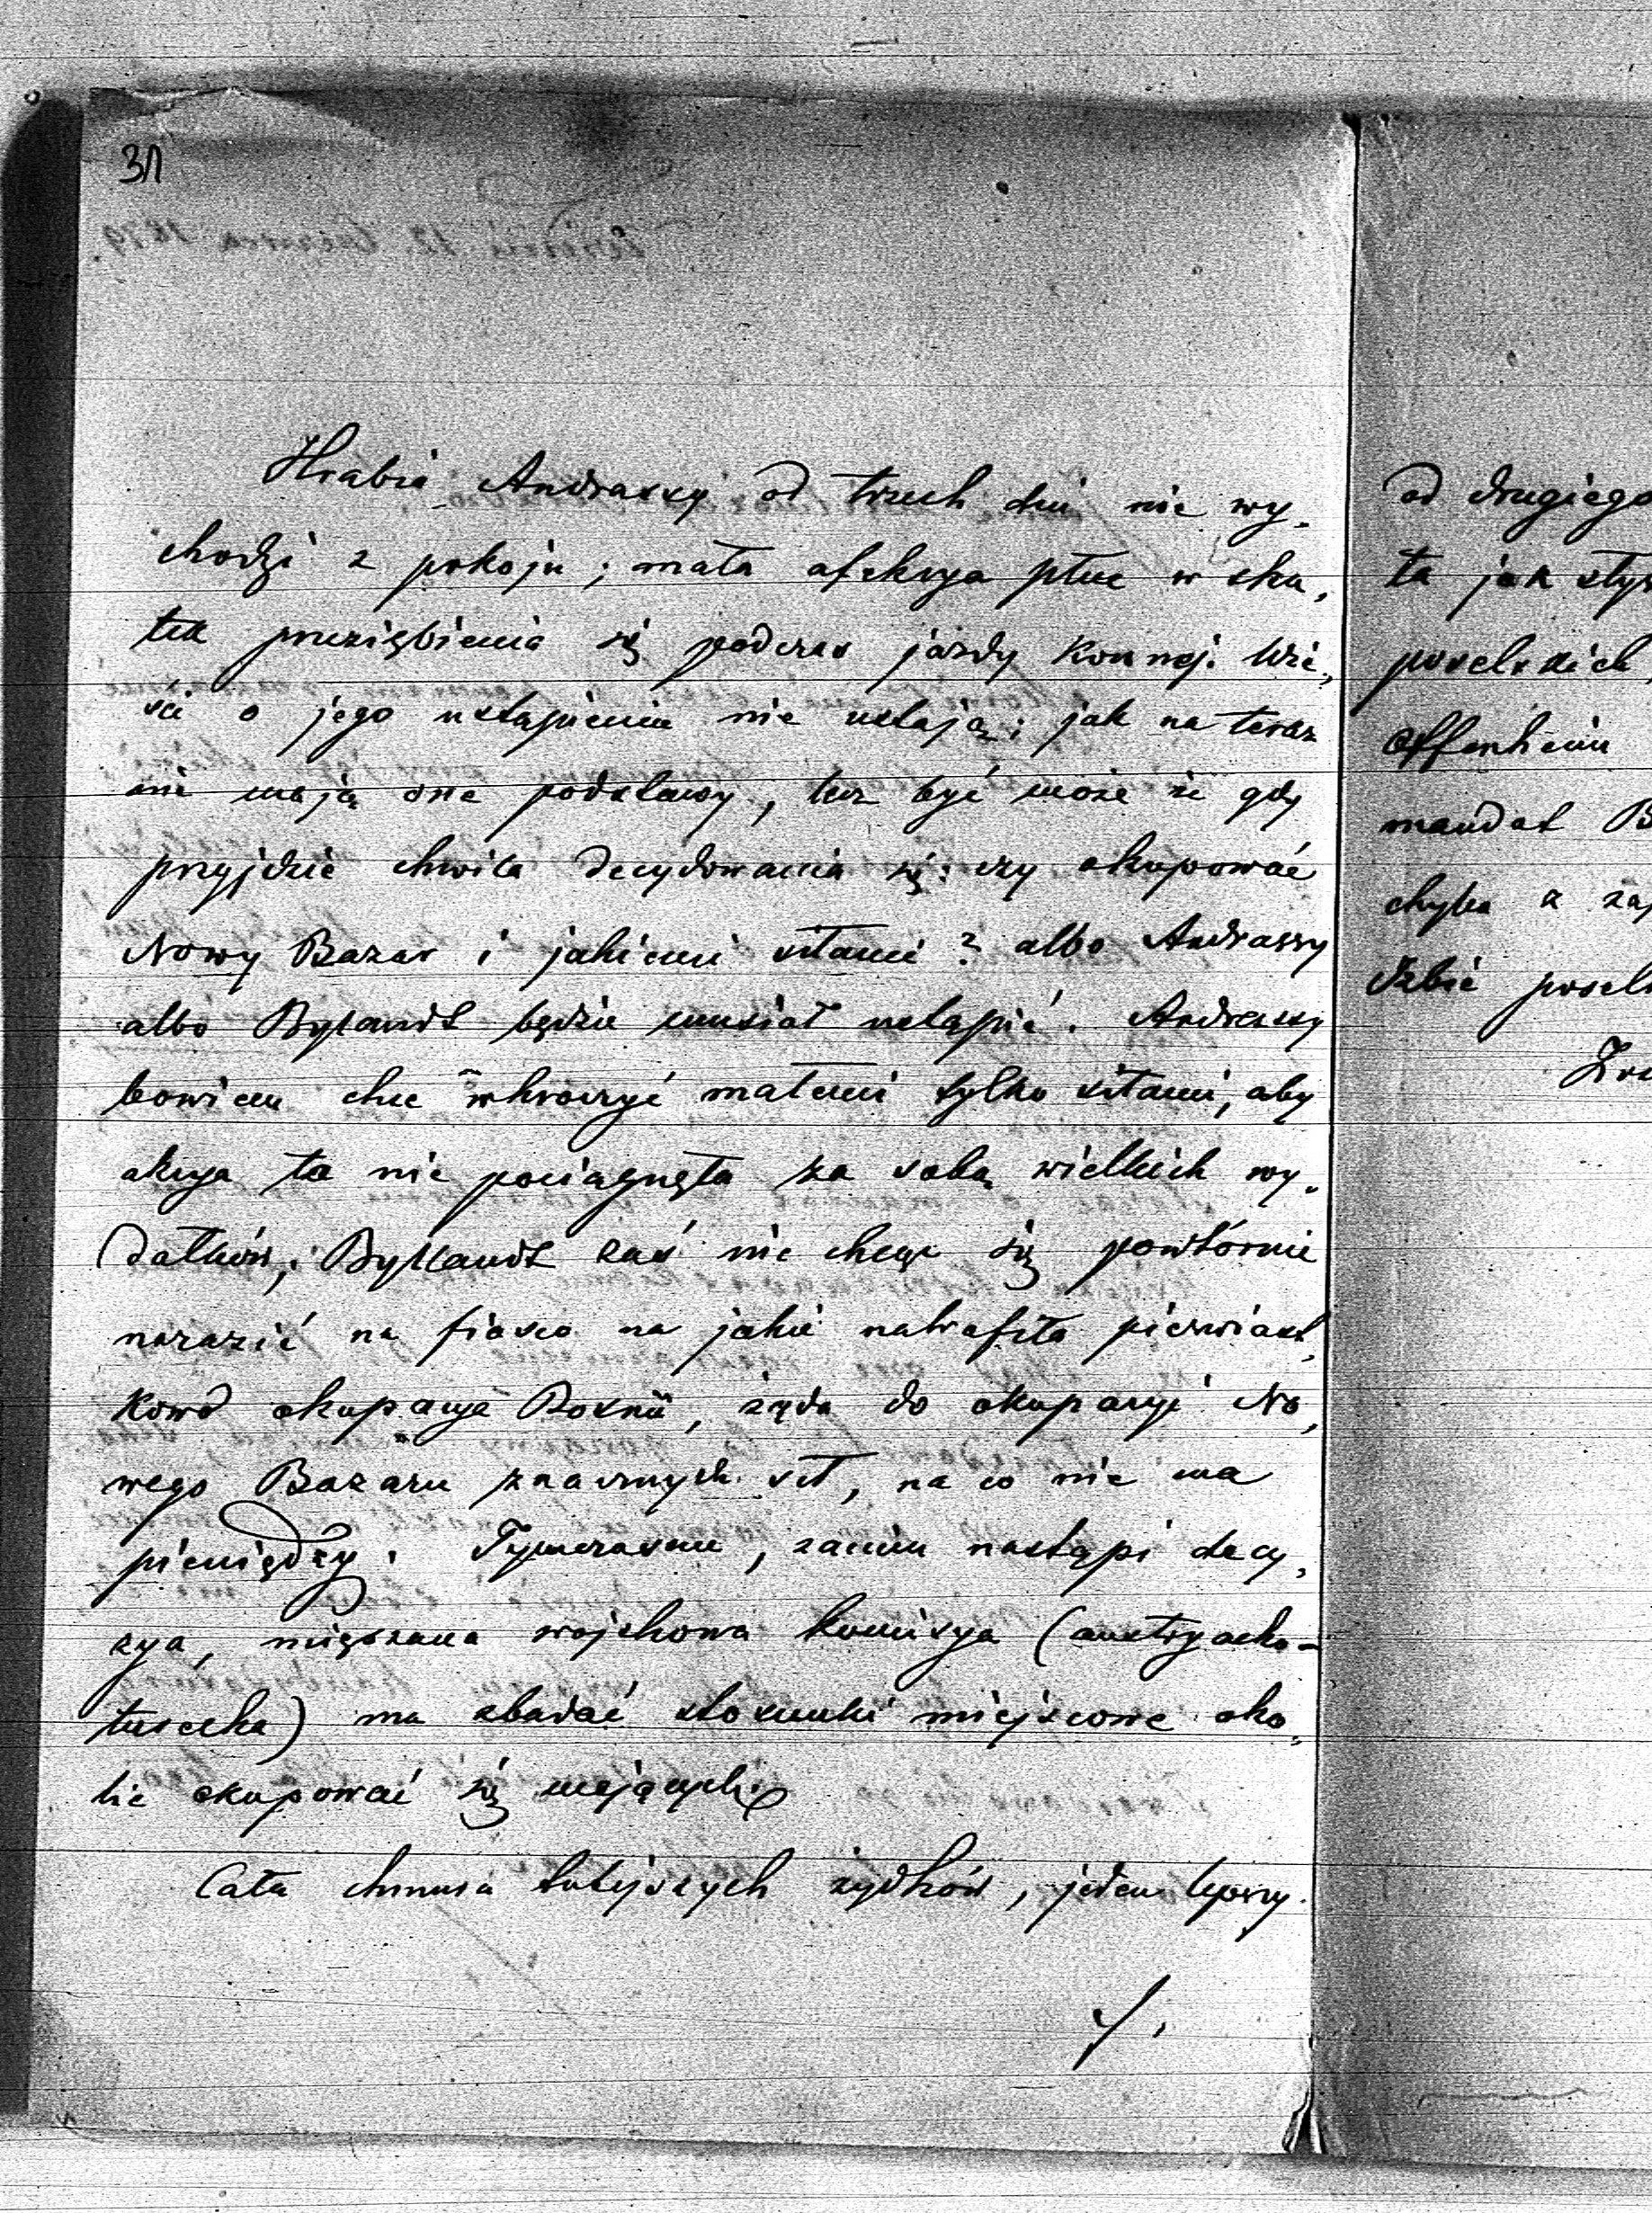 31
Hrabia Andrassy od trzech dni nie wy-
chodzi z pokoju; mała afekcya płuc w sku-
tek przeziębienia się podczas jazdy konnej. Wie-
ści o jego ustąpieniu nie ustają; jak na teraz
nie mają one podstawy, lecz być może że gdy
przyjdzie chwila decydowania się: czy okupować
Nowy Bazar i jakiemi siłami? albo Andrassy
albo Bylandt będzie musiał ustąpić. Andrassy
bowiem chce wkroczyć małemi tylko siłami, aby
akcya ta nie pociągnęła za sobą wielkich wy-
datków; Bylandt zaś nie chcąc się powtórnie
narazić na fiasco na jakie natrafiła pierwiast-
kowo okupacya Bosnii, żąda do okupacyi No-
wego Bazaru znacznych sił, na co nie ma
pieniędzy. Tymczasem, zanim nastąpi decy-
zya, mięszana wojskowa komisya (austryacko-
turecka) ma zbadać stosunki miejscowe oko-
lic okupować się mających.
Cała chmura tutejszych żydków, jeden lepszy
./.
od drugiego
ta jak
poselskich
Offenheim
mandat B
chyba z